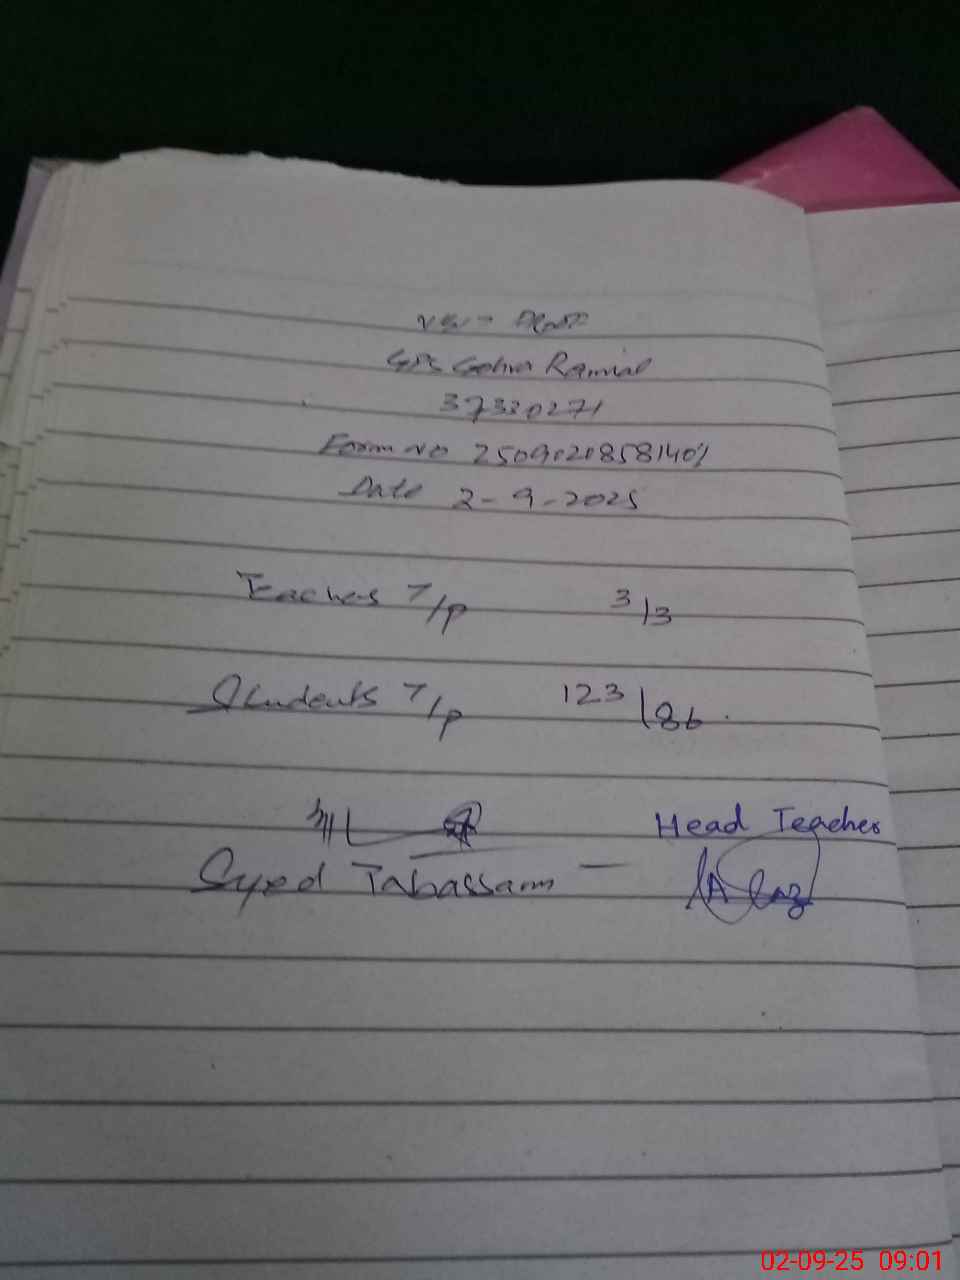 GPS Gohra Ramial
37330271
Form no 25090208581401
Date 2-9-2025
Teaches T/P 3/3
Students T/P 123/86
Head Teacher
Syed Tabassam
02-09-25 09:01